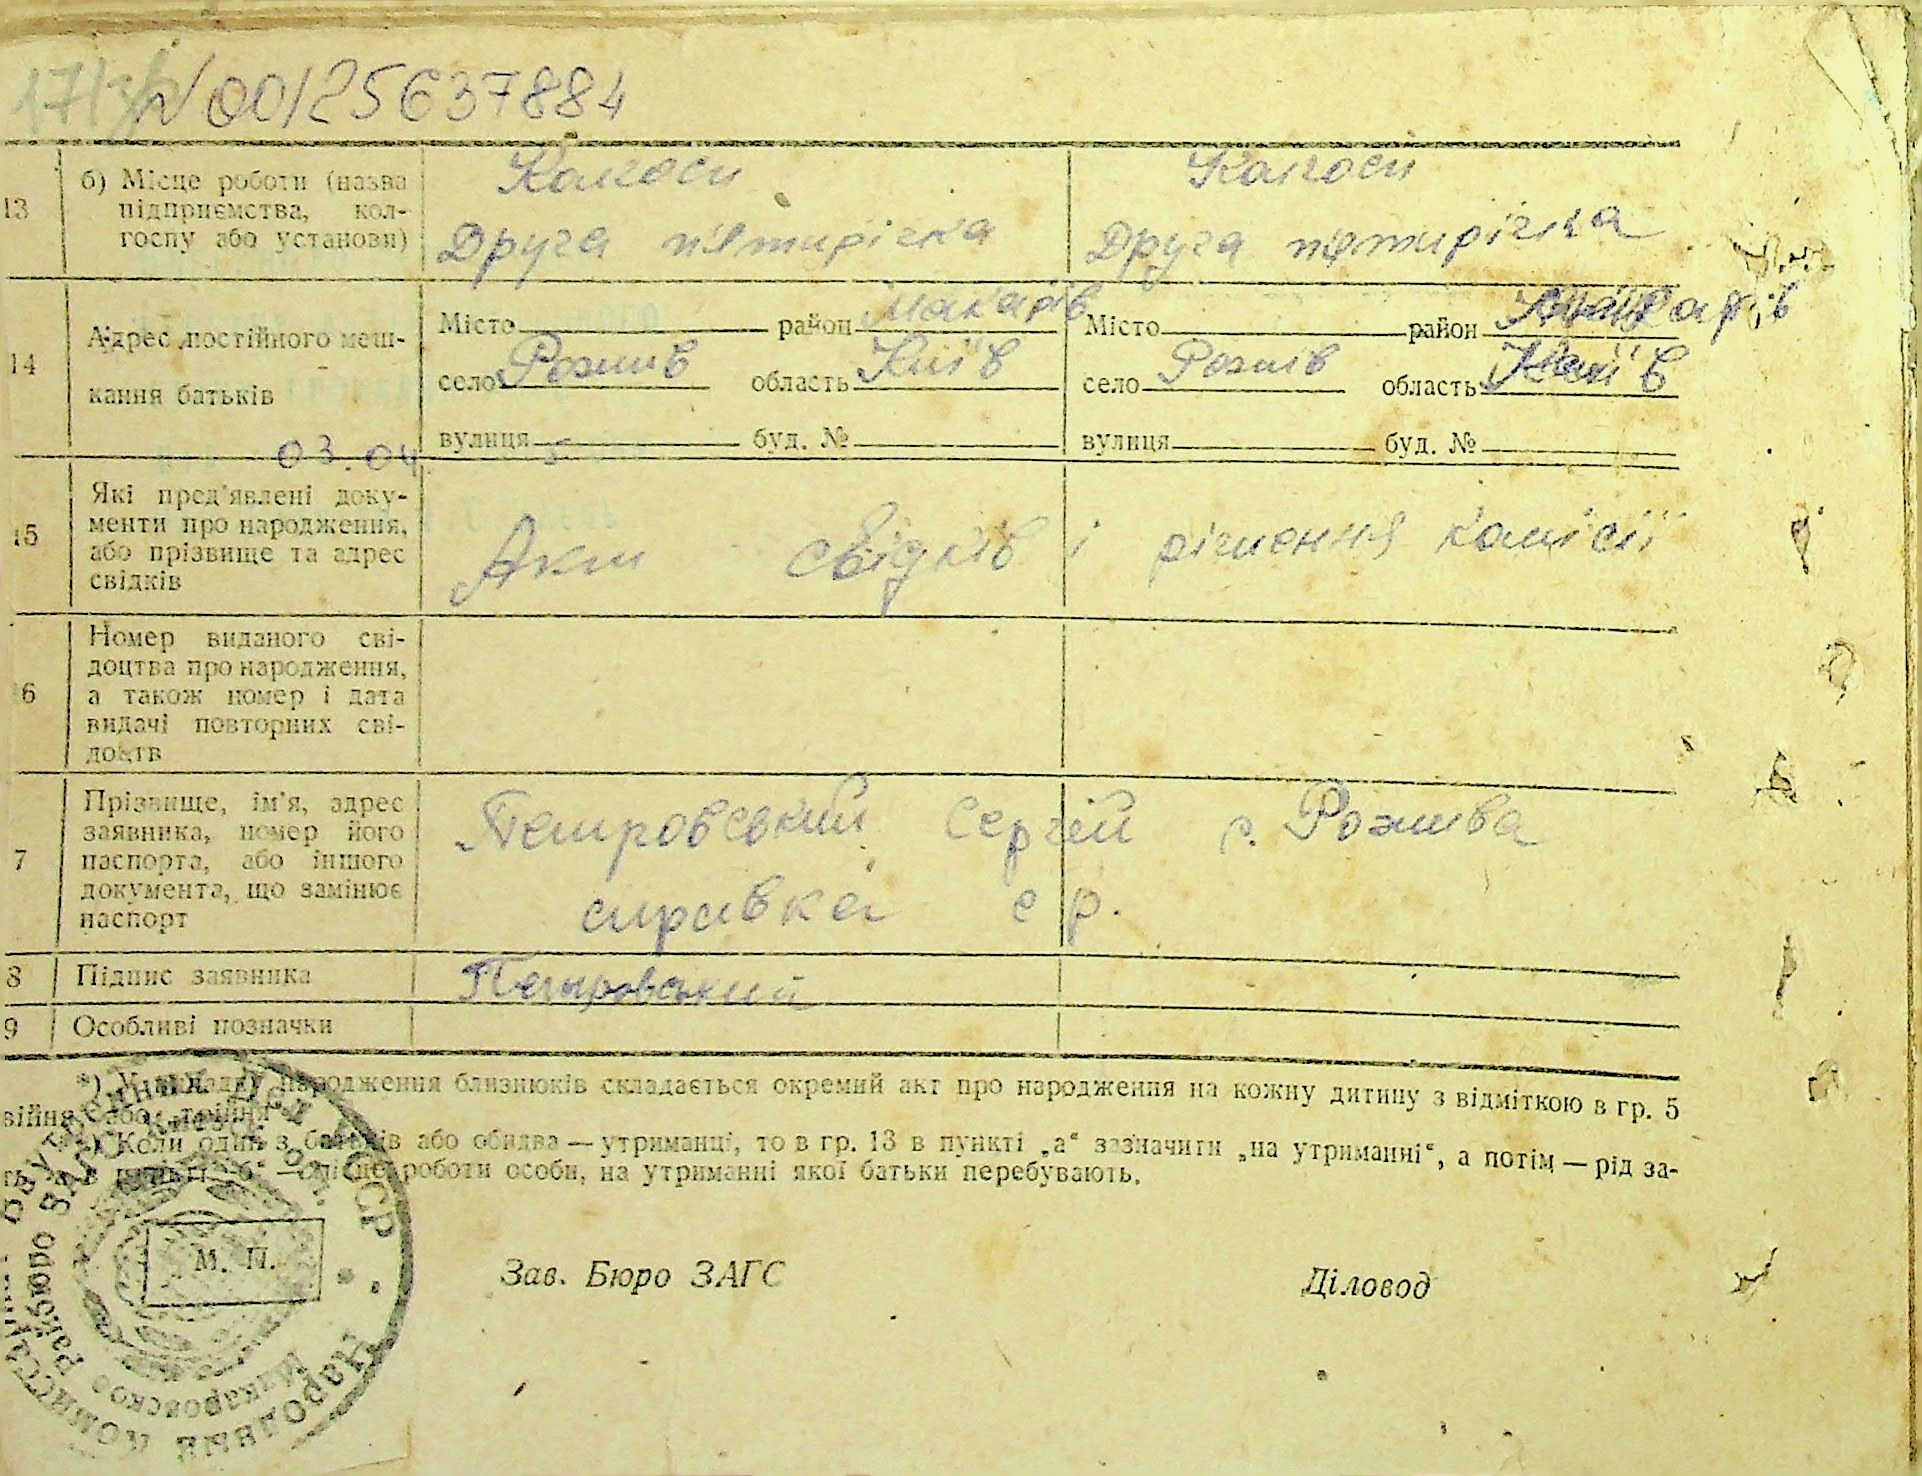 N 00125637884
13 б) Місце роботи (назва підприємства, колгоспу або установи)
Колгосп Колгосп
Друга пятирічка Друга пятирічка
14 Адрес постійного мешкання батьків
Місто район Макарів Місто район Макарів
село Рожнів область Київ село Рожнів область Київ
вулиця буд. № вулиця буд. №
03.04
15 Які пред'явлені документи про народження, або прізвище та адрес свідків
Акт свідків і рішення комісії
6 Номер виданого свідоцтва про народження, а також номер і дата видачі повторних свідоцтв
7 Прізвище, ім'я, адрес заявника, номер його паспорта, або іншого документа, що замінює паспорт
Петровський Сергій с. Рожива
справка с р.
8 Підпис заявника Петровський
9 Особливі позначки
*) У випадку народження близнюків складається окремий акт про народження на кожну дитину з відміткою в гр. 5
війня або трійня
Коли один з батьків або обидва — утриманці, то в гр. 13 в пункті „а“ зазначити „на утриманні“, а потім — рід за-
в пункті „б“ — місце роботи особи, на утриманні якої батьки перебувають.
М. П.
Зав. Бюро ЗАГС Діловод
Народный Комиссариат Внутренних Дел УССР
Макаровское райбюро ЗАГС Киевск.